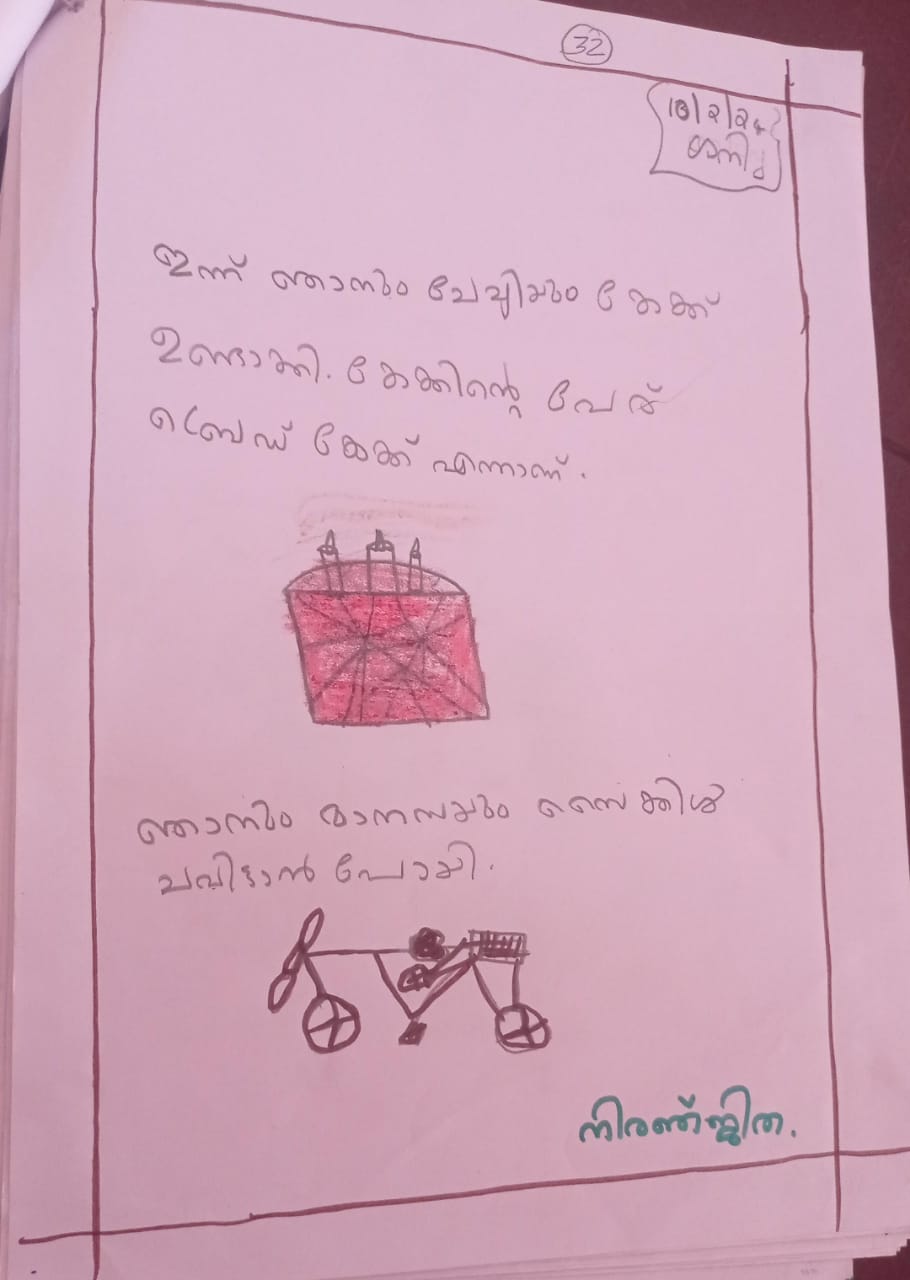 32
10/2/24
ശനി
ഇന്ന് ഞാനും ചേച്ചിയും കേക്ക്
ഉണ്ടാക്കി. കേക്കിന്റെ പേര്
ബ്രെഡ് കേക്ക് എന്നാണ്.
ഞാനും മാനസയും സൈക്കിൾ
ചവിട്ടാൻ പോയി.
നിരഞ്ജിത.